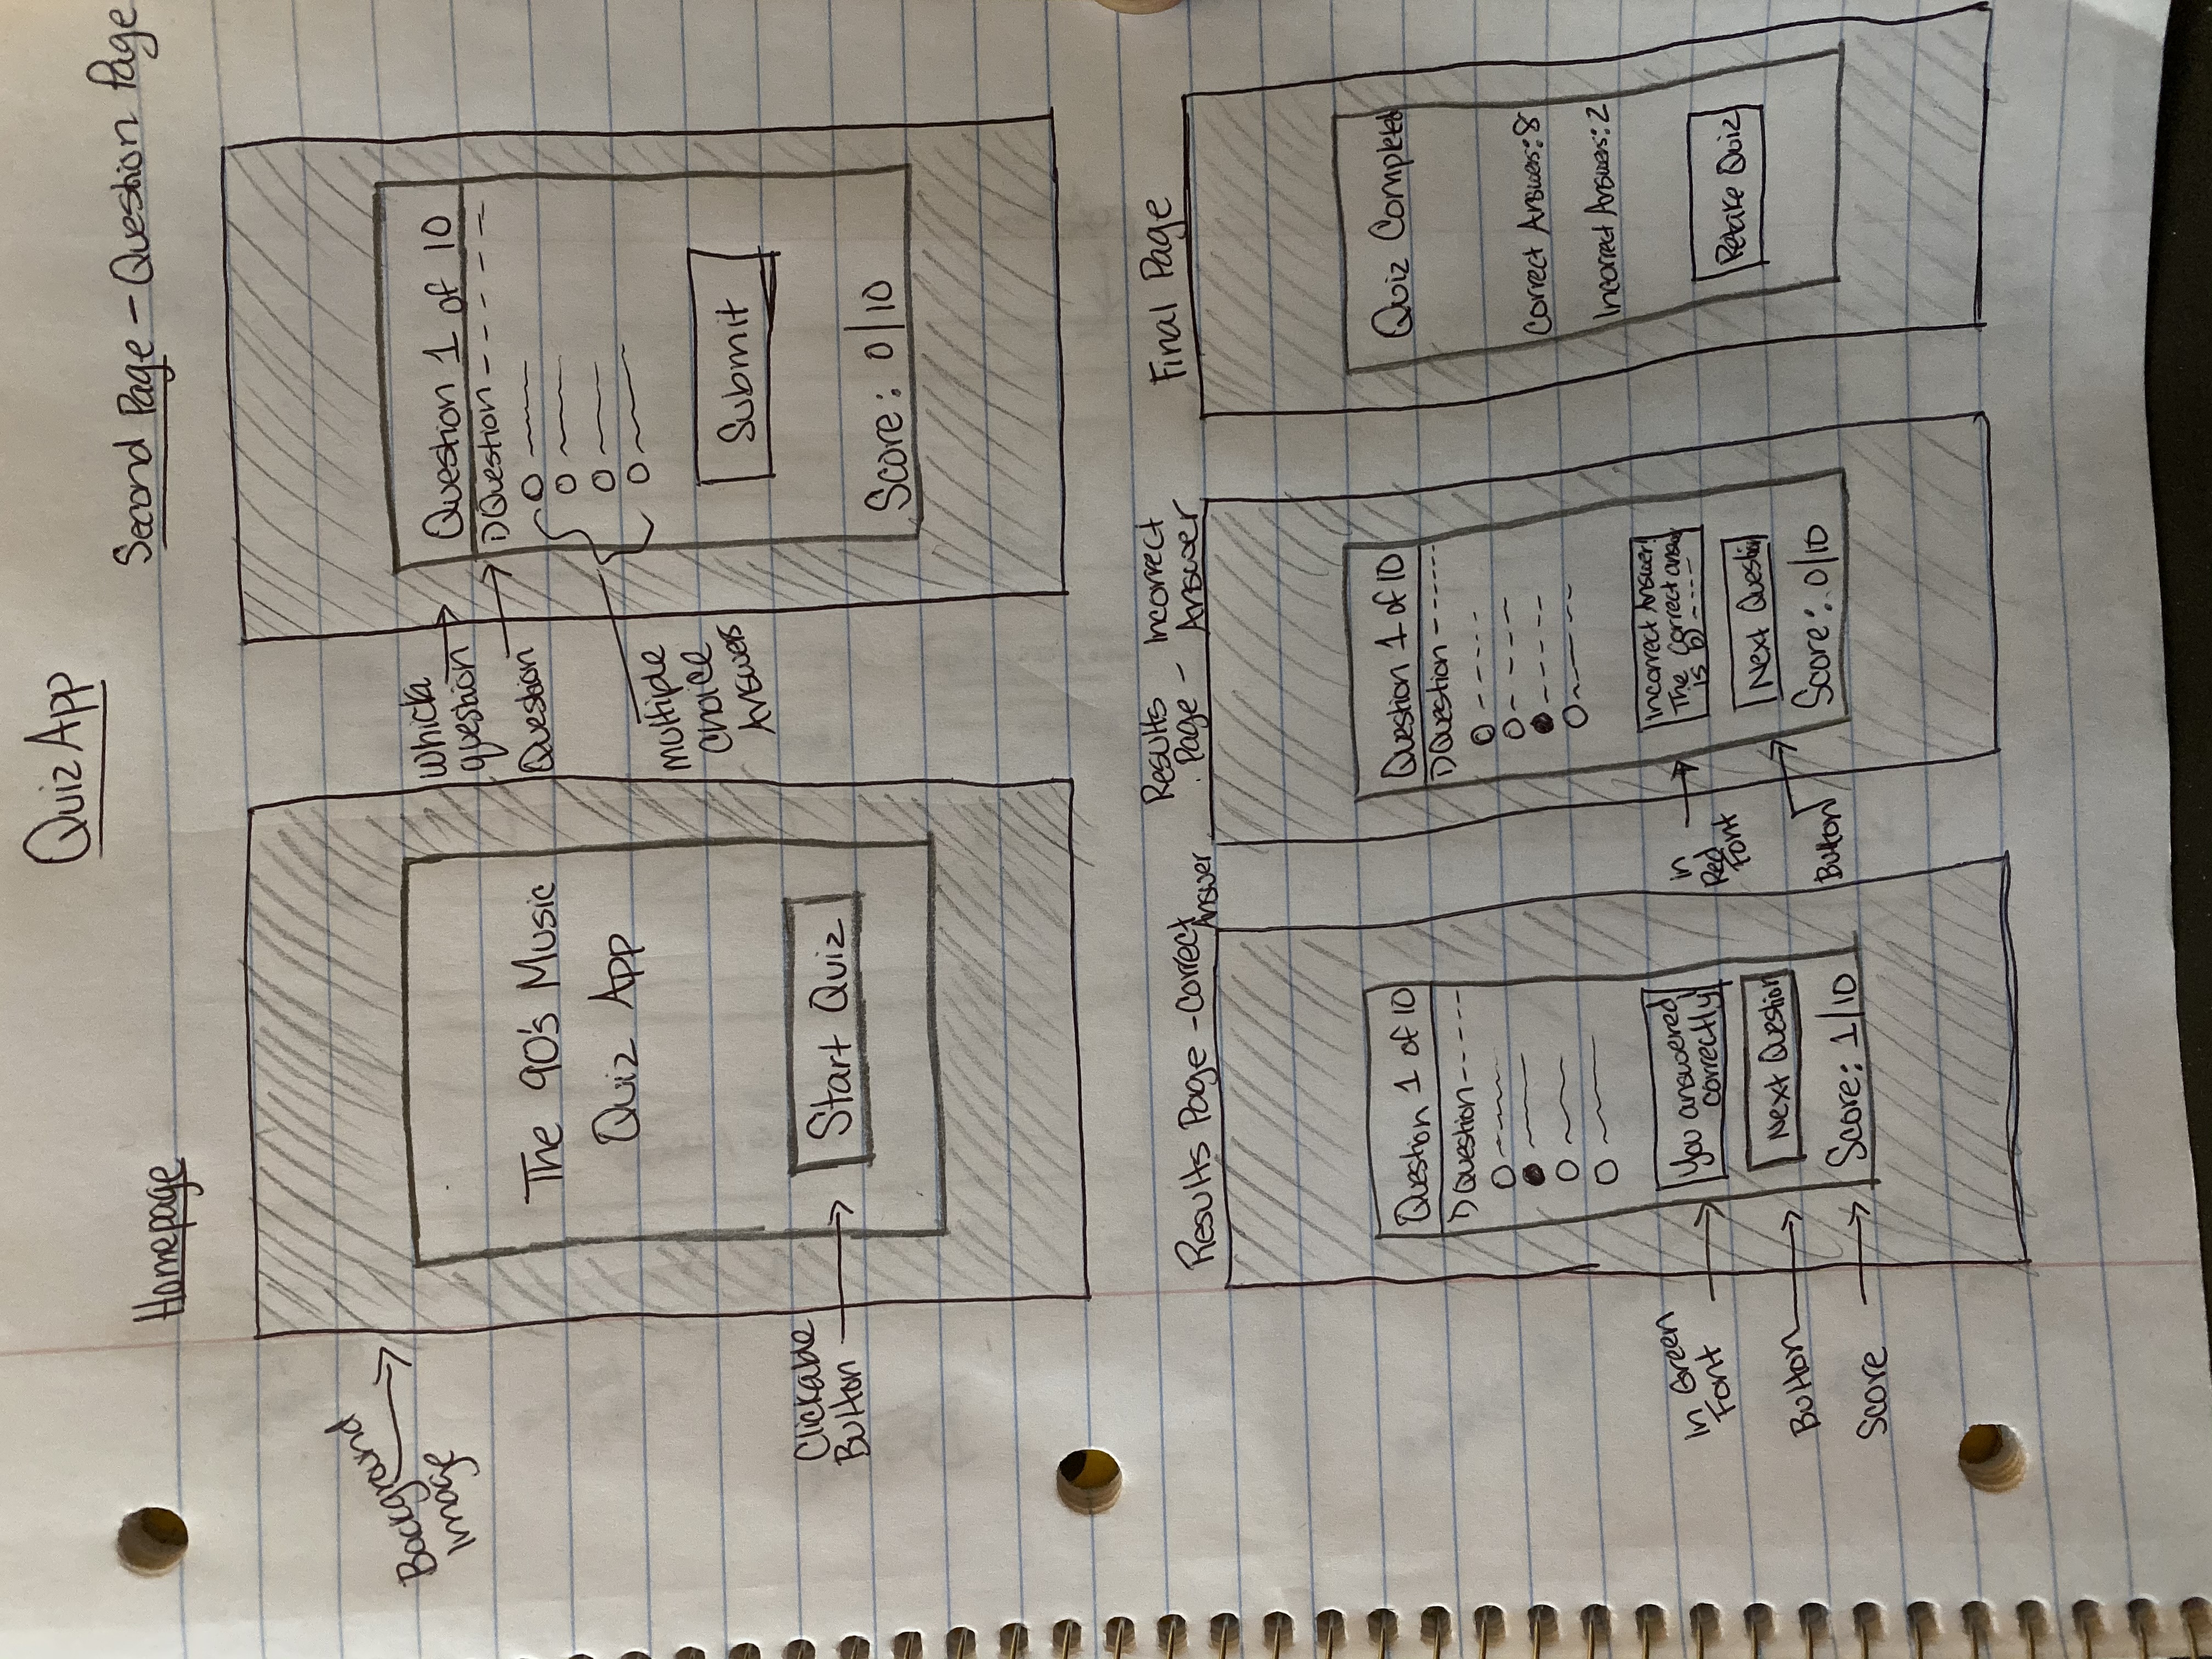 Quiz App
Homepage
Second Page - Question Page
Background
Image
The 90's Music
Quiz App
Clickable
Button
Start Quiz
Which
question
Question
Multiple
Choice
Answers
Question 1 of 10
1) Question - - - - -
Submit
Score: 0/10
Results Page - Correct
Answer
Question 1 of 10
1) Question - - - - -
In Green
Font
You answered
correctly!
Button
Next Question
Score
Score: 1/10
Results Incorrect
Page - Answer
Question 1 of 10
1) Question - - - - - -
in
Red
Font
Incorrect Answer!
The correct answer
is b) - - - -
Button
Next Question
Score: 0/10
Final Page
Quiz Completed
Correct Answers: 8
Incorrect Answers: 2
Retake Quiz